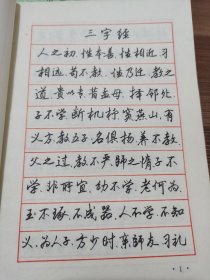 三字经
人之初,性本善,性相近,习
相远,苟不教,性乃迁,教之
道,贵以专,昔孟母,择邻处,
子不学,断机杼,窦燕山,有
义方,教五子,名俱扬,养不教,
父之过,教不严,師之惰,子不
学,非所宜,幼不学,老何为,
玉不琢,不成器,人不学,不知
义,为人子,方少时,亲師友,习礼
·1·